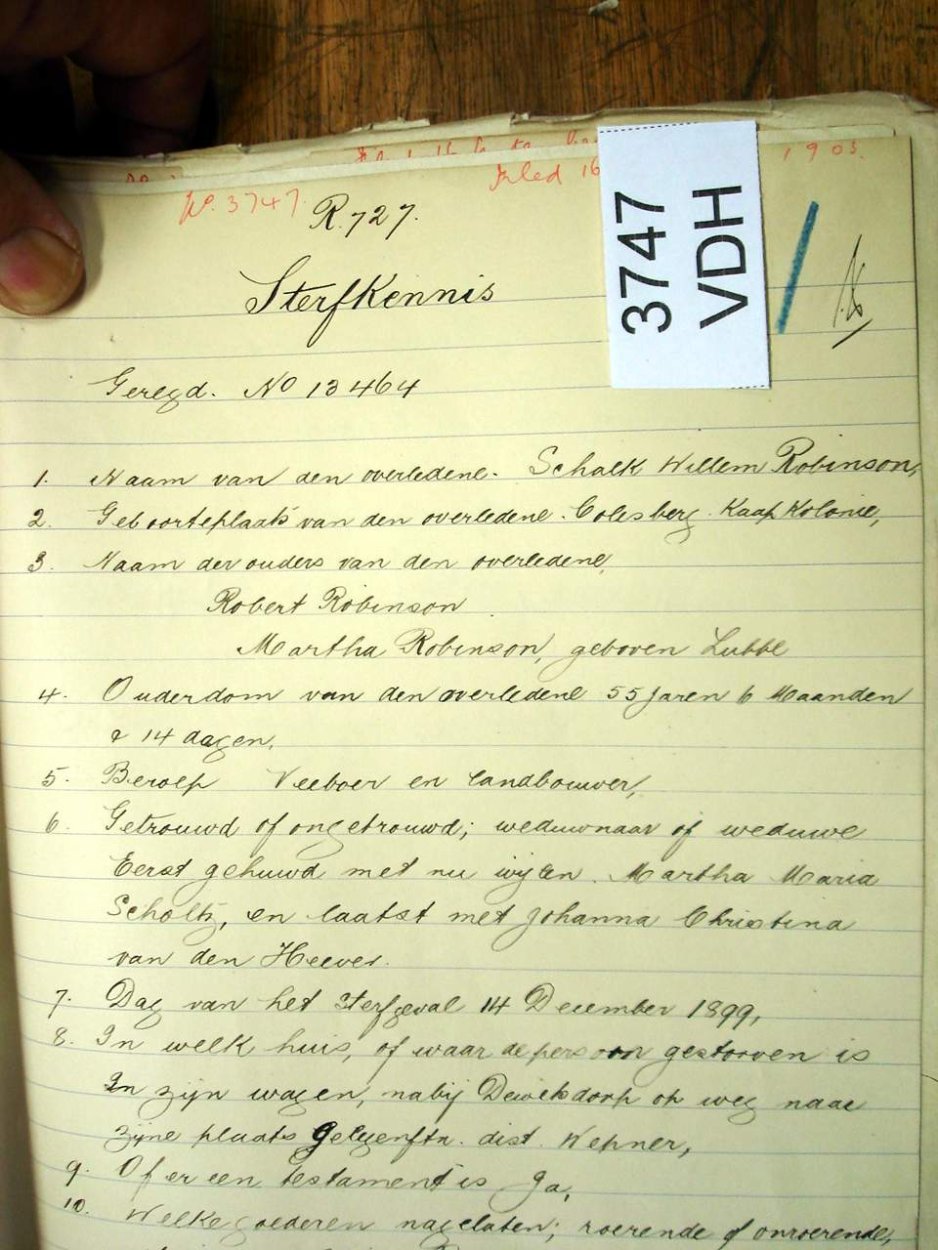 No. 3747.
Filed 16 1903.
R. 727.
3747
VDH
Sterfkennis
Geregd. No 13464
1. Naam van den overledene. Schalk Willem Robinson,
2. Geboorteplaats van den overledene. Colesberg. Kaap Kolonie,
3. Naam der ouders van den overledene,
Robert Robinson
Martha Robinson, geboren Lubbe
4. Ouderdom van den overledene 55 Jaren 6 Maanden
& 14 dagen,
5. Beroep Veeboer en landbouwer,
6. Getrouwd of ongetrouwd; weduwnaar of weduwe
Eerst gehuwd met nu wijlen. Martha Maria
Scholtz, en laatst met Johanna Christina
van den Heever.
7. Dag van het sterfgeval 14 December 1899,
8. In welk huis, of waar de persoon gestorven is
In zijn wagen, nabij op weg naar
zijne plaats dist. Wepner,
9. Of er een testament is Ja,
10. Welke goederen nagelaten; roerende of onroerende,